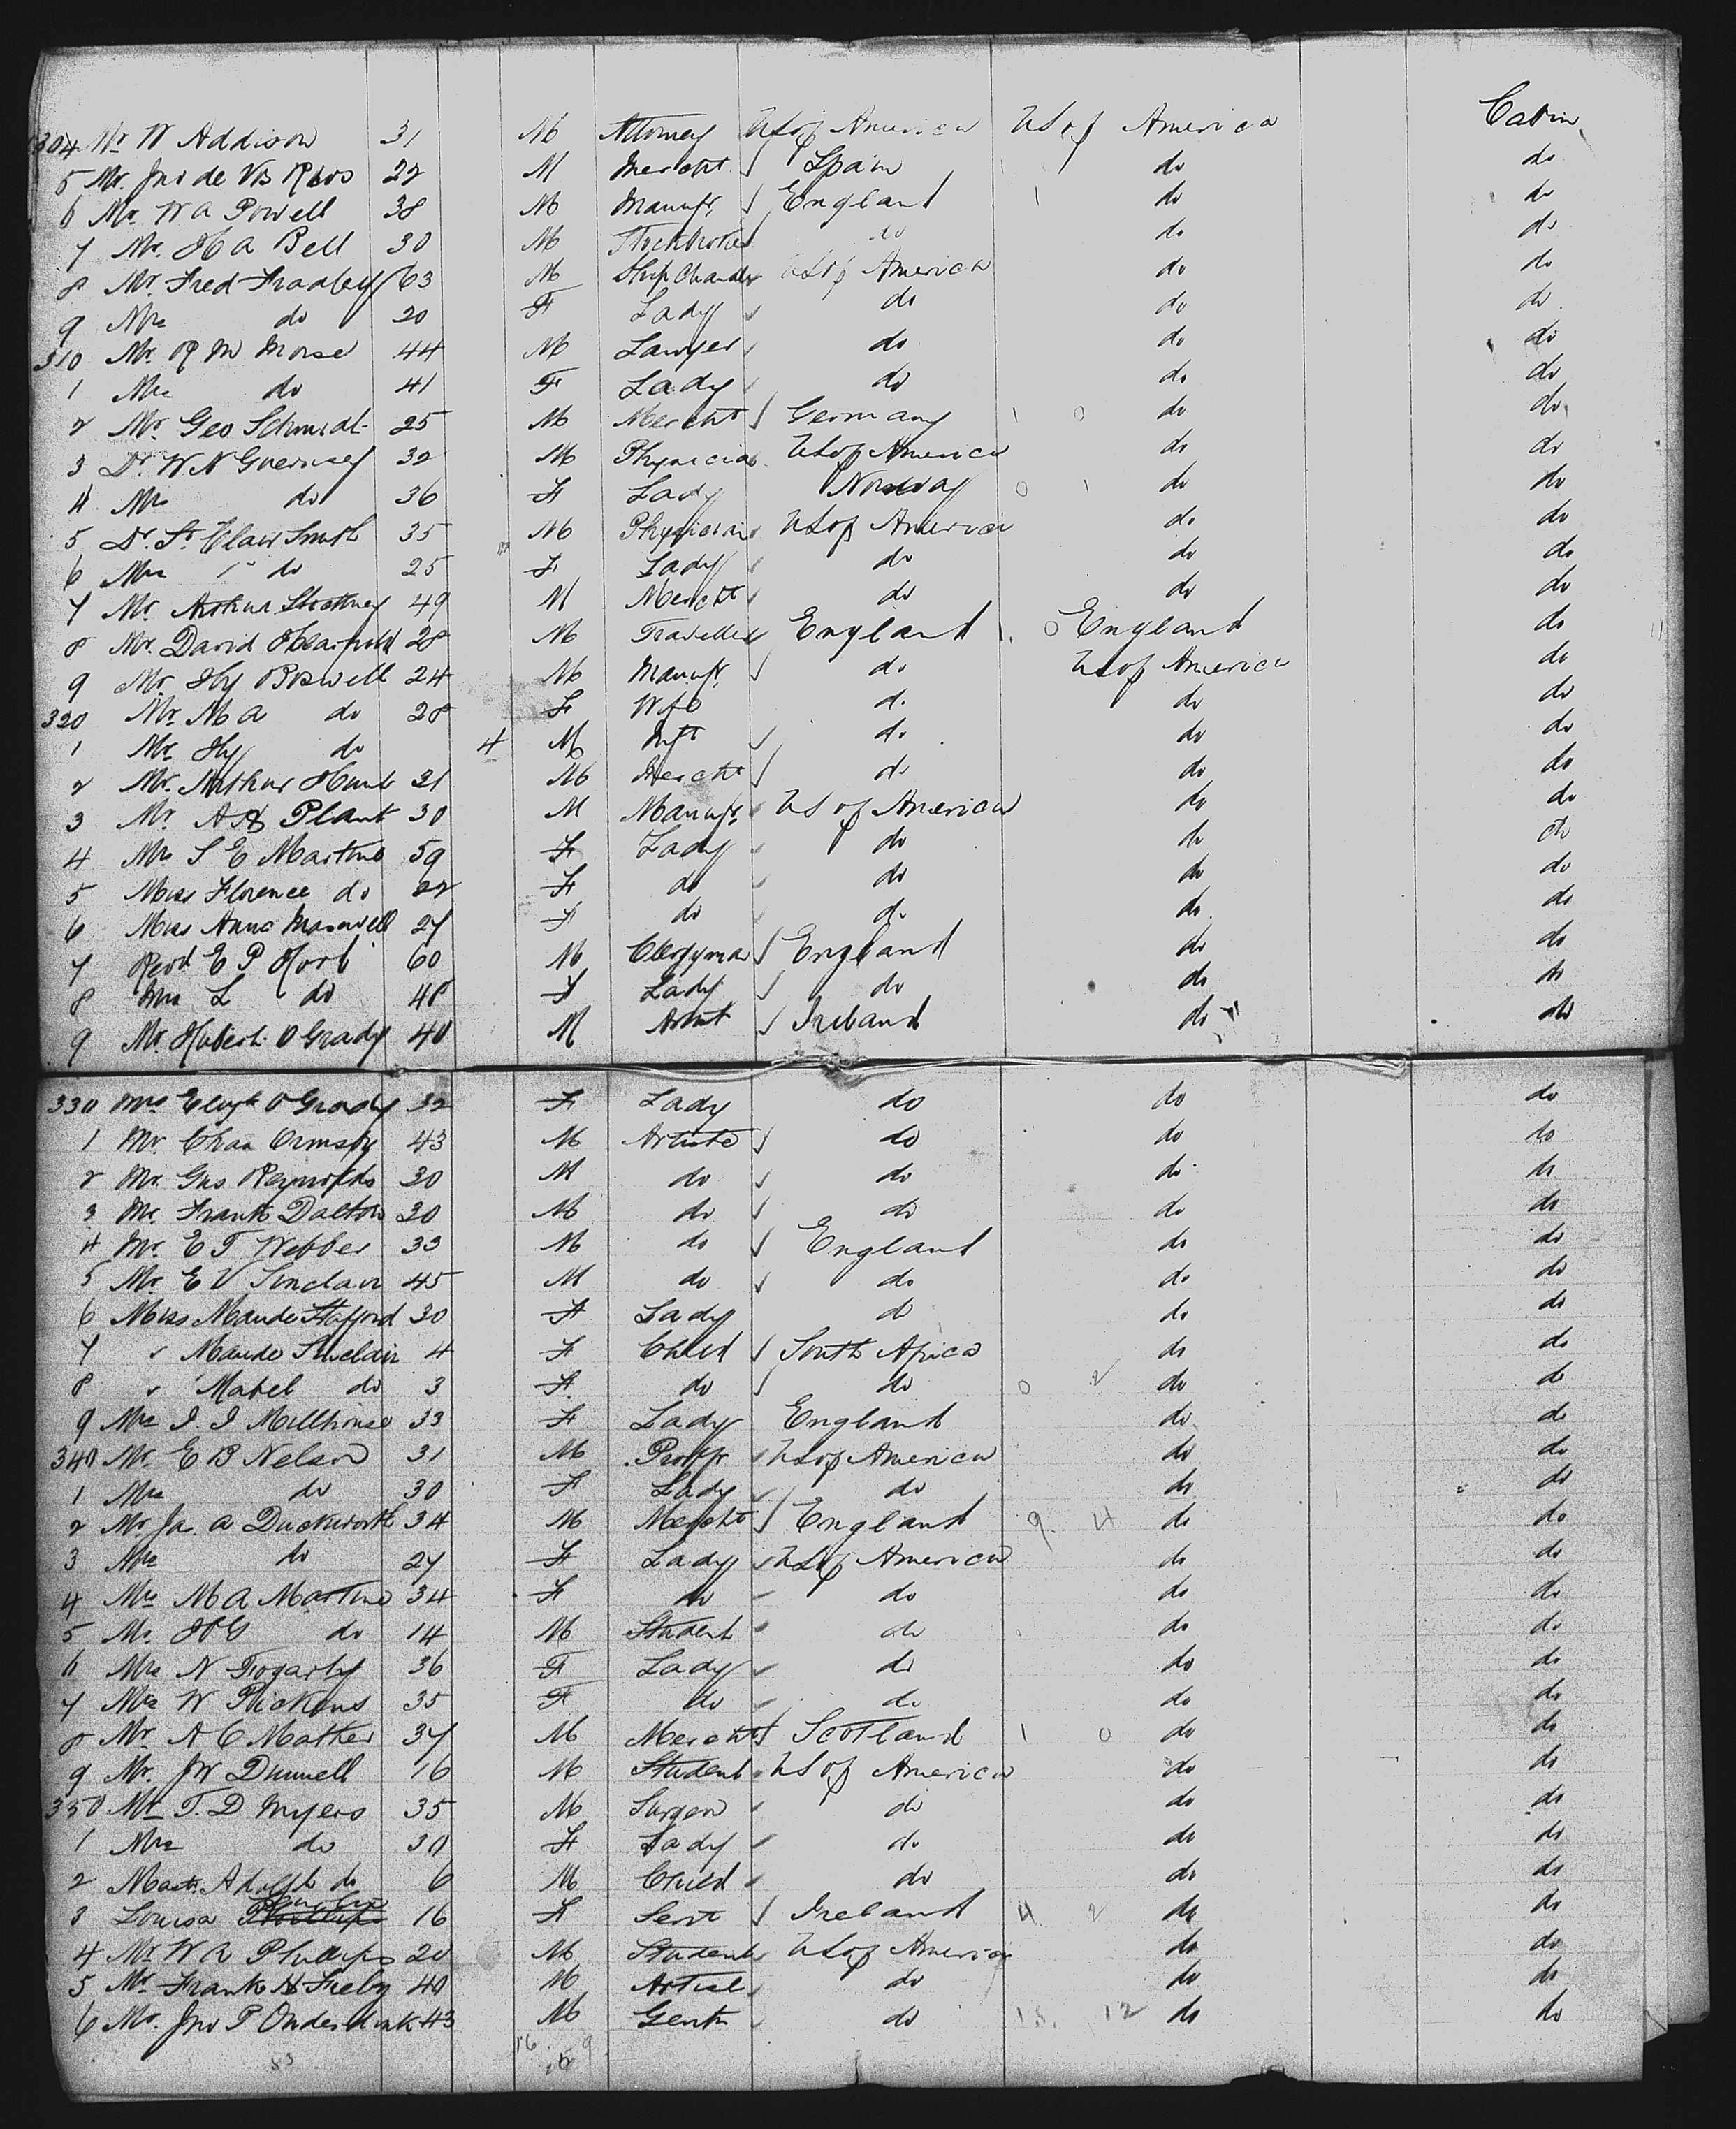 304 Mr W Addison 31 M Attorney U S of America U S of America Cabin
5 Mr. Jno de Rios 22 M Mercht Spain do do
6 Mr. W A Powell 38 M Manufr England 1 do do
7 Mr. H A Bell 30 M Stockbroker do do do
8 Mr. Fred Fradley 63 M Ship Chandler U S of America do do
9 Mrs do 20 F Lady do do do
310 Mr. R M Morse 44 M Lawyer do do do
1 Mrs do 41 F Lady do do do
2 Mr. Geo Schmidt 25 M Mercht Germany 1 0 do do
3 Dr. W N Guernsey 32 M Physician U S of America do do
4 Mrs do 36 F Lady Norway 0 1 do do
5 Dr. St. Clair Smith 35 M Physician U S of America do do
6 Mrs do 25 F Lady do do do
7 Mr. Arthur 49 M Mercht do do do
8 Mr. David 28 M Traveller England 1. 0 England do
9 Mr. Hy Boswell 24 M Manufr. do U S of America do
320 Mr. M A do 28 F Wife do do do
1 Mr. Hy do 4 M Inft do do do
2 Mr. Arthur Hunt 21 M Mercht do do do
3 Mr. A H Plant 30 M Manufr. U S of America do do
4 Mrs S E Martine 59 F Lady do do do
5 Miss Florence do 22 F do do do do
6 Miss Anna Maxwell 27 F do do do do
7 Revd E P 60 M Clergyman England do do
8 Mrs L do 48 F Lady do do do
9 Mr. Hubert O Grady 40 M Artist Ireland do do
330 Mrs Elizth O Grady 32 F Lady do do do
1 Mr. Chas Ormsby 43 M Artiste do do do
2 Mr. Gus Reynolds 30 M do do do do
3 Mr. Frank Dalton 30 M do do do do
4 Mr. E T Webber 33 M do England do do
5 Mr. E V Sinclair 45 M do do do do
6 Miss Maude Stafford 30 F Lady do do do
7 " Maude Sinclair 4 F Child South Africa do do
8 " Mabel do 3 F do do 0 2 do do
9 Mrs I. I Millhouse 33 F Lady England do do
340 Mr. E B Nelson 31 M U S of America do do
1 Mrs do 30 F Lady do do do
2 Mr. Ja. A Duckworth 34 M Mercht England 9. 4 do do
3 Mrs do 27 F Lady U S of America do do
4 Mrs M A Martine 34 F do do do do
5 Mr. H G do 14 M Student do do do
6 Mrs N Fogarty 36 F Lady do do do
7 Mrs W Pickens 35 F do do do do
8 Mr. A C Mather 37 M Mercht Scotland 1 0 do do
9 Mr. J W Dunnell 16 M Student U S of America do do
350 Mr T. D Myers 35 M Surgeon do do do
1 Mrs do 30 F Lady do do do
2 Mast. Adolph do 6 M Child do do do
3 Louisa 16 F Servt Ireland 4 2 do do
4 Mr. W A Phillips 20 M Student U S of America do do
5 Mr. Frank H 40 M Artist do do do
6 Mr. Jno P Onderdonk 43 M Gentn do 12 do do
83 16 9